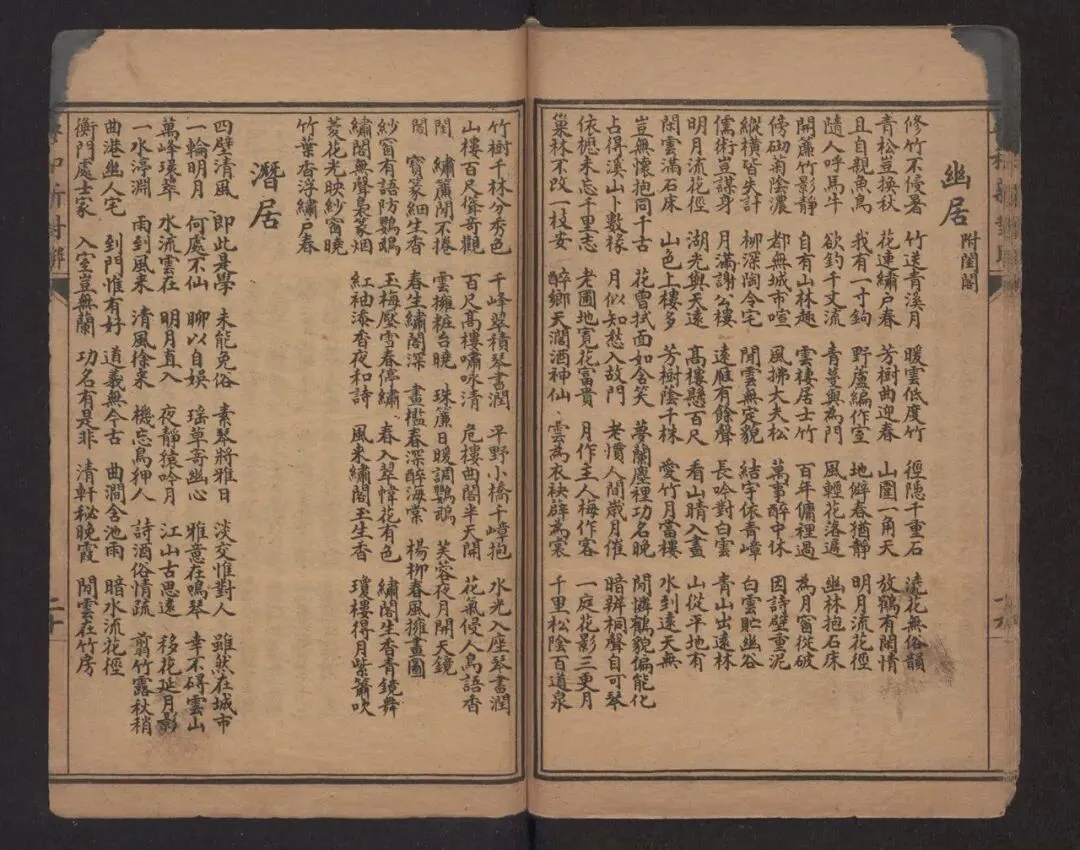 幽居 附閨閣
修竹不侵暑 竹送青溪月 暖雲低度竹 徑隱千重石 澆花無俗韻
青松豈換秋 花連繡戶春 芳樹曲迎春 山圍一角天 放鶴有閑情
且自親魚鳥 我有一寸鉤 野蘆編作室 地僻春猶靜 明月流花徑
隨人呼馬牛 欲釣千丈流 青蔓與為門 風輕花落遲 幽林抱石床
開簾竹影靜 自有山林趣 雲棲居士竹 百年傭裡過 為月窗從破
傍砌菊陰濃 都無城市喧 風拂大夫松 萬事醉中休 因詩壁重泥
縱橫皆失計 柳深陶令宅 閒雲無定貌 結宇依青嶂 白雲貯幽谷
儒術豈謀身 月滿謝公樓 遠雁有餘聲 長吟對白雲 青山出遠林
明月流花徑 湖光與天遠 高樓懸百尺 看山晴入畫 山從平地有
閑雲滿石床 山色上樓多 芳樹蔭千株 愛竹月當樓 水到遠天無
豈無懷抱同千古 花曾拭面如含笑 夢蘭塵裡功名晚 閒憐鶴貌偏能化
占得溪山卜數椽 月似知愁入故門 老慣人間歲月催 暗辨桐聲自可琴
依樾未忘千里志 老圃地寬花富貴 月作主人梅作客 一庭花影三更月
巢林不改一枝安 醉鄉天濶酒神仙 雲為衣袂辟為裳 千里松陰百道泉
竹樹千林分秀色 千峰翠積琴書潤 平野小橋千嶂抱 水光入座琴書潤
山樓百尺聳奇觀 百尺高樓嘯咏清 危樓曲閣半天開 花氣侵人鳥語香
閨 繡簾閒不捲 雲擁粧台曉 珠簾日暖調鸚鵡 芙蓉夜月開天鏡
閣 寶篆細生香 春生繡閣深 畫檻春深醉海棠 楊柳春風擁畫圖
紗窗有語防鸚鵡 玉梅壓雪春停繡 春入翠幃花有色 繡閣生香青鏡舞
繡閣無聲裊篆烟 紅袖添香夜和詩 風來繡閣玉生香 瓊樓得月紫簫吹
菱花光映紗窗曉
竹葉香浮繡戶春
潛居
四壁清風 即此是學 未能免俗 素琴將雅日 淡交惟對人 雖然在城市
一輪明月 何處不仙 聊以自娛 瑶草寄幽心 雅意在鳴琴 幸不碍雲山
萬峰環翠 水流雲在 明月直入 夜靜猿吟月 江山古思遠 移花延月影
一水渟淵 雨到風來 清風徐來 機忘鳥狎人 詩酒俗情疏 翦竹露秋稍
曲港幽人宅 到門惟有好 道義無今古 曲澗含池雨 暗水流花徑
衡門處士家 入室豈無蘭 功名有是非 清軒秘晚霞 閒雲在竹房
二十